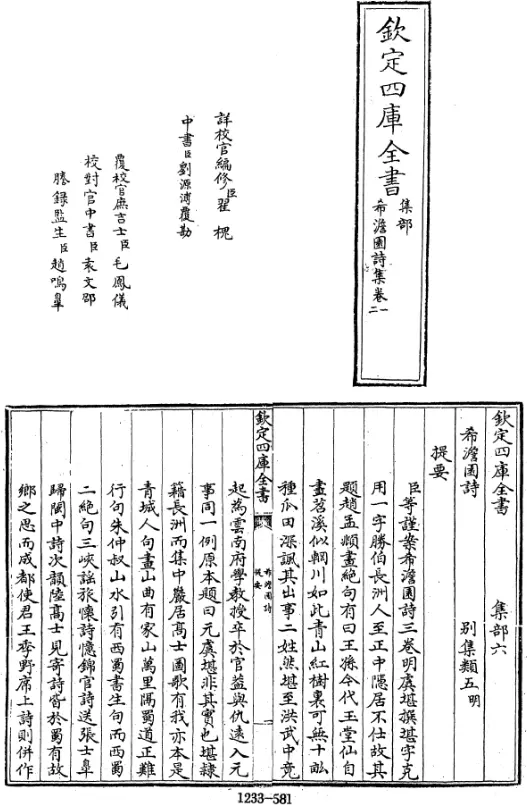 欽定四庫全書
集部
希澹園詩集卷一
二
詳校官編修臣翟槐
中書臣劉源溥覆勘
覆校官庶吉士臣毛鳳儀
校對官中書臣袁文邵
謄錄監生臣趙鳴臯
欽定四庫全書
集部六
希澹園詩
别集類五明
提要
臣等謹案希澹園詩三卷明虞堪撰堪字克
用一字勝伯長洲人至正中隱居不仕故其
題趙孟頫畫絶句有曰王孫今代玉堂仙自
畫苕溪似輞川如此青山紅樹裏可無十畝
種瓜田深諷其出事二姓然堪至洪武中竟
欽定四庫全書
希澹園詩
提要
起為雲南府學教授卒於官葢與仇遠入元
事同一例原本題曰元虞堪非其實也堪隸
籍長洲而集中巖居髙士圖歌有我亦本是
青城人句畫山曲有家山萬里隔蜀道正難
行句朱仲叔山水引有西蜀書生句而西蜀
二絶句三峽謡張懷詩憶錦官詩送張士臯
歸閬中詩次韻陸髙士見寄詩皆於蜀有故
鄉之思而成都使君王齊野席上詩則併作
1233-581